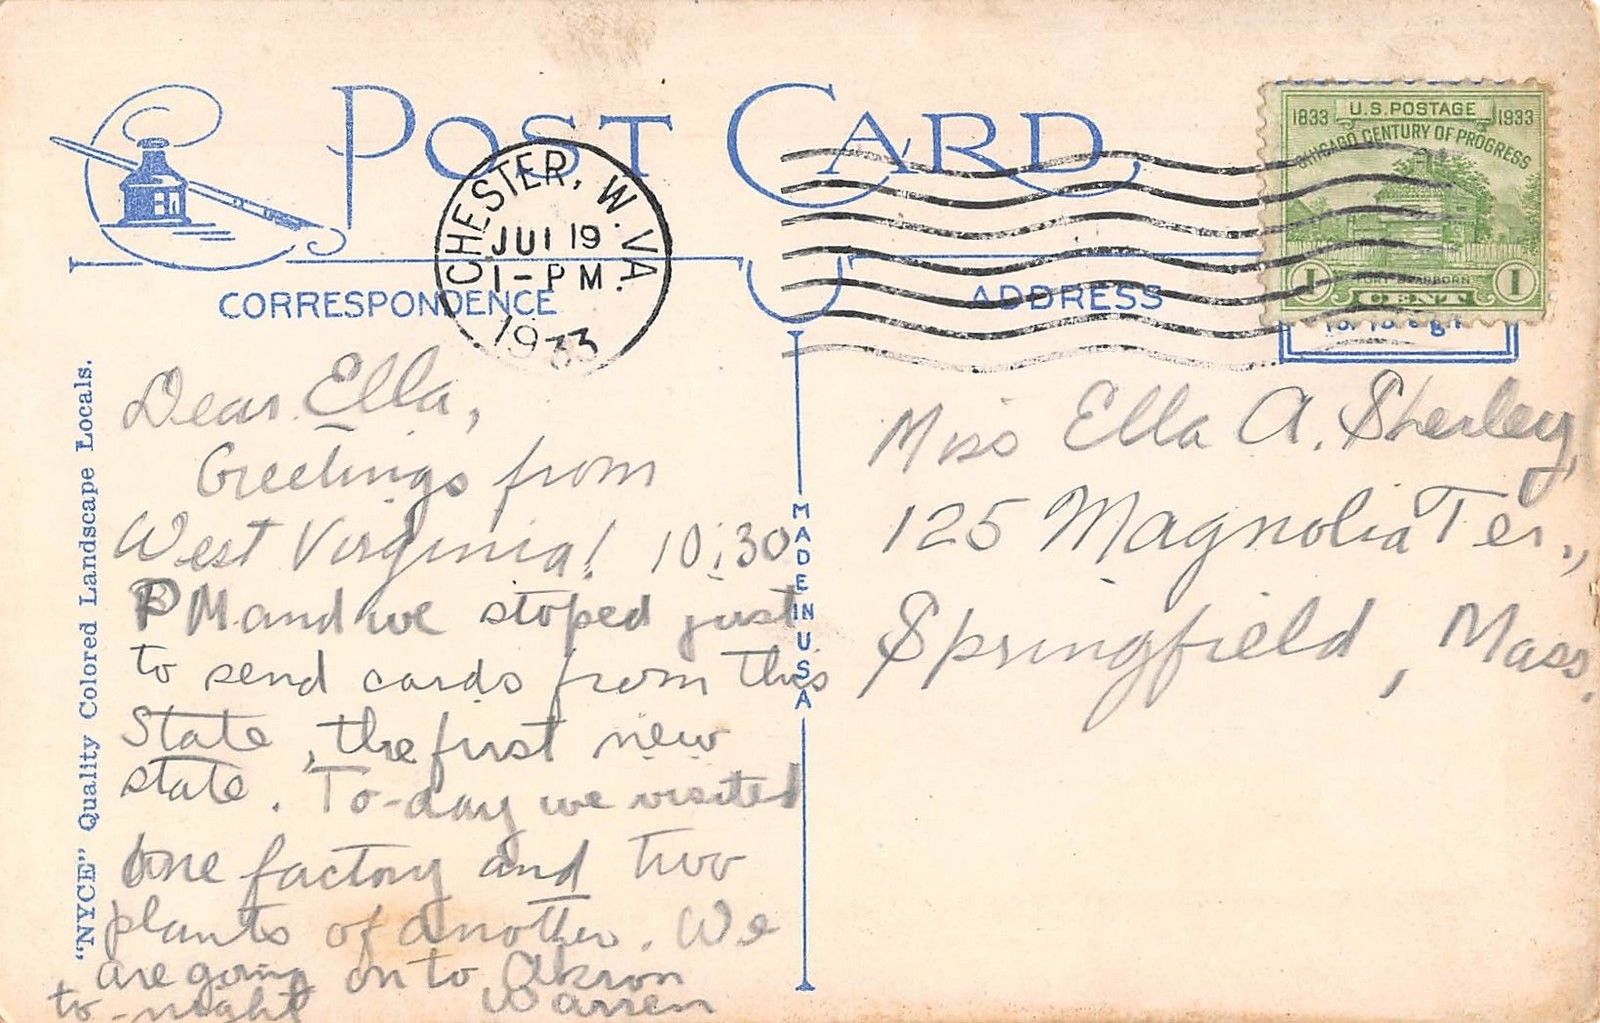 POST CARD
CHESTER, W. VA.
JUL 19
1-PM
1933
1833 U.S. POSTAGE 1933
CHICAGO CENTURY OF PROGRESS
FORT DEARBORN
1 CENT 1
CORRESPONDENCE
ADDRESS
"NYCE" Quality Colored Landscape Locals.
MADE IN U.S.A
Dear Ella,
Greetings from
West Virginia! 10:30
PM and we stoped just
to send cards from this
State, the first new
state. To-day we visited
one factory and two
plants of another. We
are going on to Akron
to-night Warren
Miss Ella A. Sherley,
125 Magnolia Ter.,
Springfield, Mass.